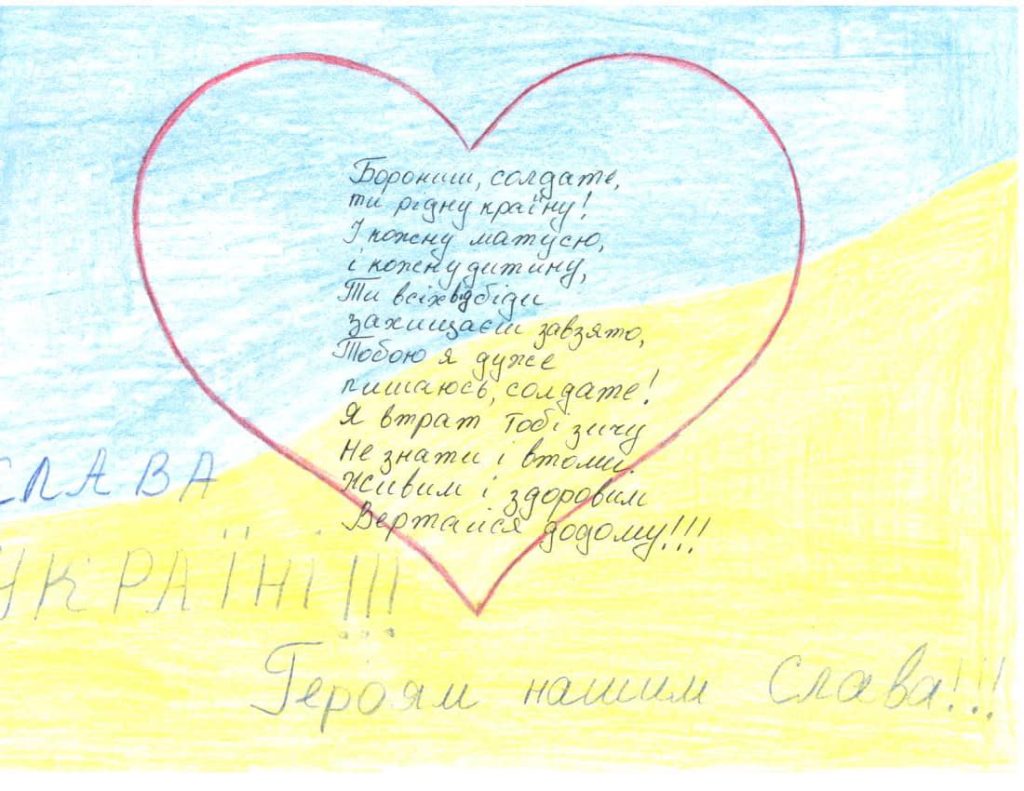 Борониш, солдате,
ти рідну країну!
І кожну матусю,
і кожну дитину,
Ти всіх від біди
захищаєш завзято,
Тобою я дуже
пишаюсь, солдате!
Я втрат тобі зичу
не знати і втоми.
Живим і здоровим
Вертайся додому!!!
СЛАВА
УКРАЇНІ!!!
Героям нашим Слава!!!